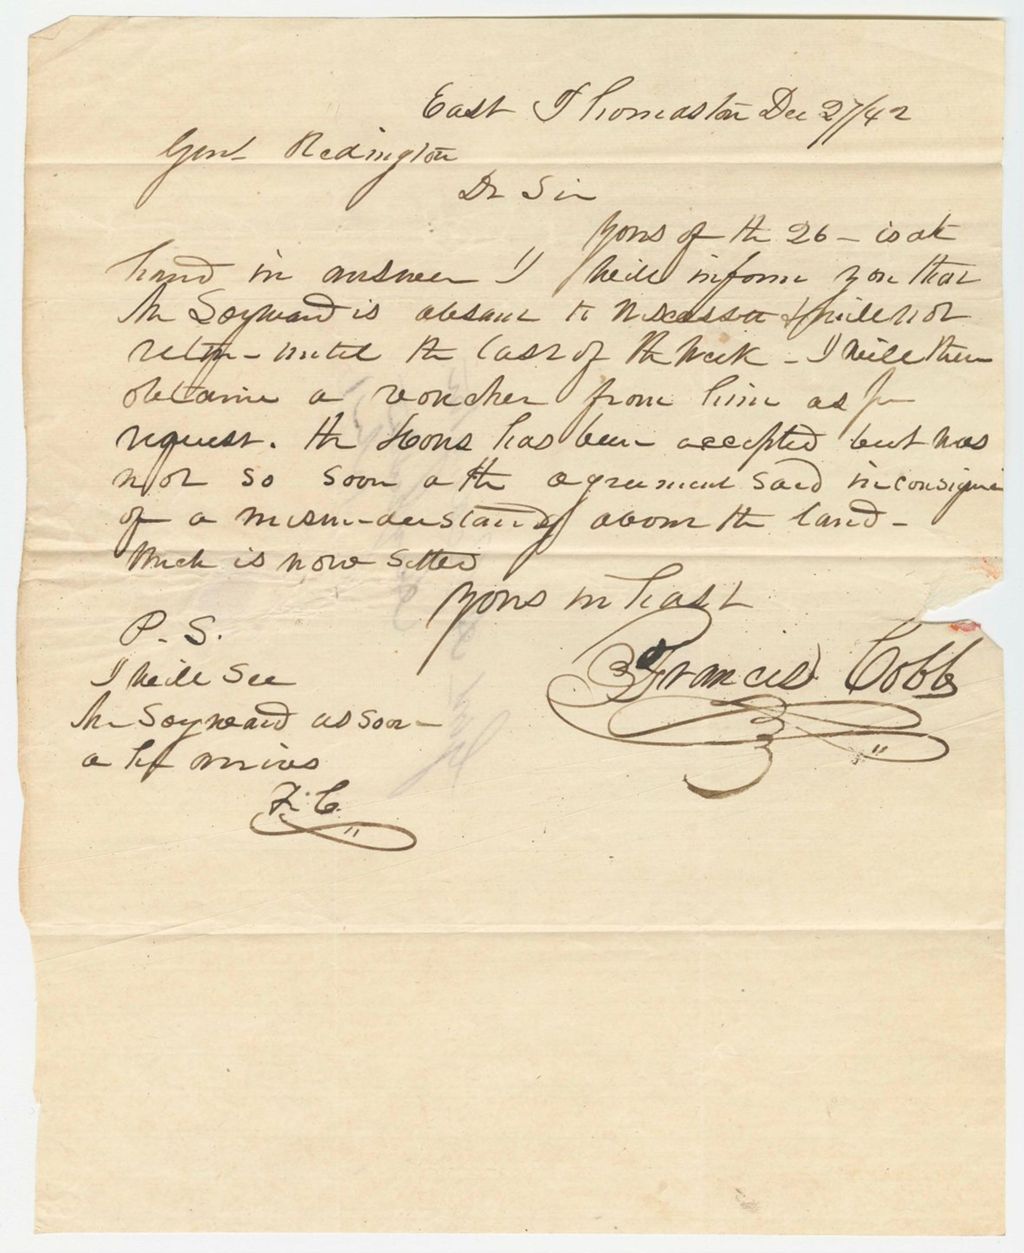 East Thomaston Dec 27/42
Genl Redington
Dr Sir
yours of the 26 – is at
hand in answer I will inform you that
Mr Sayward is absent to Wiscasset & will not
return until the last of the week – I will then
obtain a voucher from him as per
request. the House has been accepted but was
not so soon as the agreement said in
of a misunderstanding about the land –
Which is now setled
yours in hast
Francis Cobb
P. S.
I will see
Mr Sayward as soon
as he arrives
F. C.